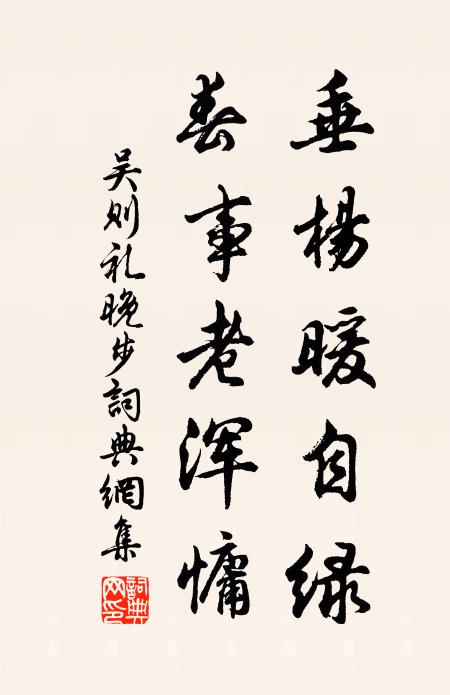 垂楊暖自緑
春事老浑慵
吴则礼晚步詞典網集
詞典网印